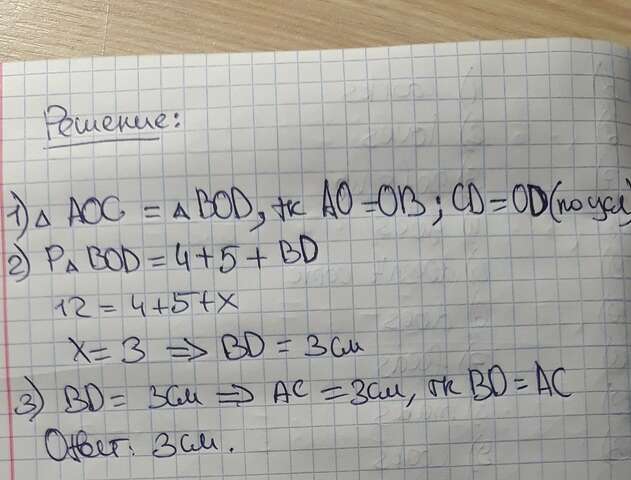 Решение:
1) △ AOC = △ BOD, тк AO=OB; CD=OD (по усл)
2) P△ BOD = 4+5+BD
12 = 4+5+x
x = 3 => BD = 3см
3) BD = 3см => AC = 3см, тк BD = AC
Ответ: 3см.